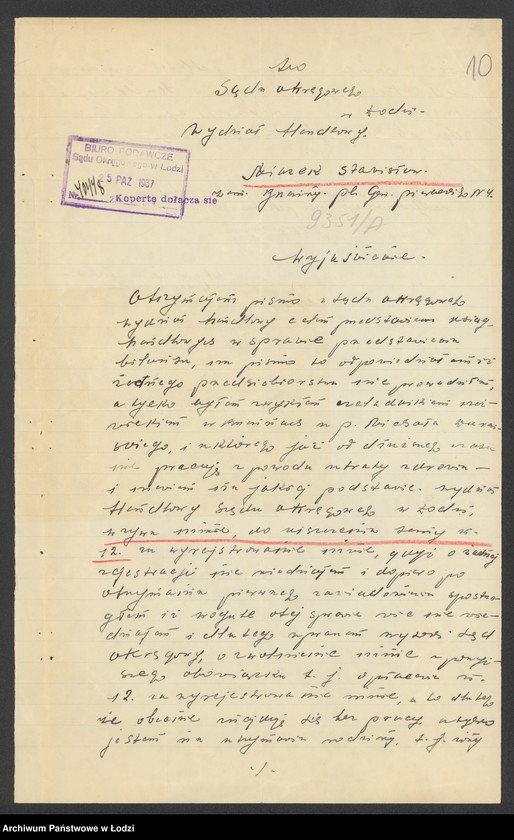 10
Do
Sądu Okręgowego
w Łodzi.
Wydział Handlowy.
BIURO PODAWCZE
Sądu Okręgowego w Łodzi
25 PAŹ 1937
Nr.
Kopertę dołącza się
Stanisław
zam. pl. Gen. Nr 4.
9351/A
Wyjaśnienie.
Otrzymałem pismo z Sądu Okręgowego
Wydział Handlowy celem przedstawienia
w sprawie przedstawienia
bilansu, na pismo to odpowiedziałem iż
żadnego przedsiębiorstwa nie prowadziłem,
a tylko byłem zwykłym czeladnikiem
w u p.
i u którego już od dłuższego czasu
nie pracuję z powodu utraty zdrowia
i niewiem na jakiej podstawie Wydział
Handlowy Sądu Okręgowego w Łodzi,
wzywa mnie, do uiszczenia sumy zł.
12. za wyrejestrowanie mnie, gdyż o żadnej
rejestracji nie wiedziałem i dopiero po
otrzymaniu pierwszego zawiadomienia
iż wogóle o tej sprawie nic nie
i dlatego upraszam Sąd
Okręgowy, o zwolnienie mnie z
obowiązku t. j. opłacenia zł.
12. za wyrejestrowanie mnie, a to dlatego
że obecnie znajduję się bez pracy a tylko
jestem na utrzymaniu rodziny, t. j. żony
./.
Archiwum Państwowe w Łodzi